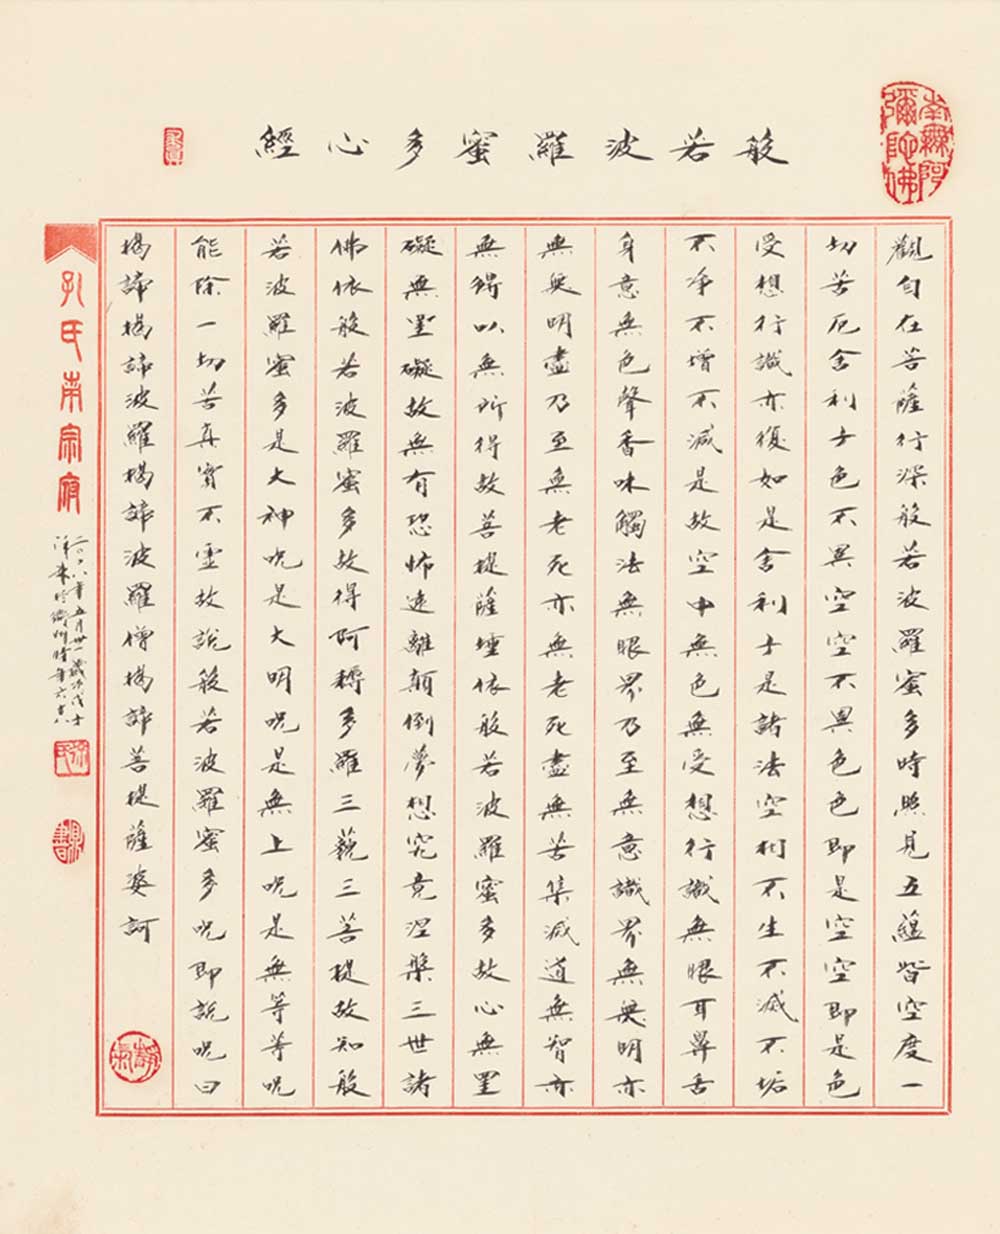 南無阿
彌陀佛
般若波羅蜜多心經
觀自在菩薩行深般若波羅蜜多時照見五蘊皆空度一
切苦厄舍利子色不異空空不異色色即是空空即是色
受想行識亦復如是舍利子是諸法空相不生不滅不垢
不净不增不減是故空中無色無受想行識無眼耳鼻舌
身意無色聲香味觸法無眼界乃至無意識界無無明亦
無無明盡乃至無老死亦無老死盡無苦集滅道無智亦
無得以無所得故菩提薩埵依般若波羅蜜多故心無罣
礙無罣礙故無有恐怖遠離顛倒夢想究竟涅槃三世諸
佛依般若波羅蜜多故得阿耨多羅三藐三菩提故知般
若波羅蜜多是大神呪是大明呪是無上呪是無等等呪
能除一切苦真實不虛故說般若波羅蜜多呪即說呪曰
揭諦揭諦波羅揭諦波羅僧揭諦菩提薩婆訶
孔氏南宗府
二〇一八年五月卅一歲次戊